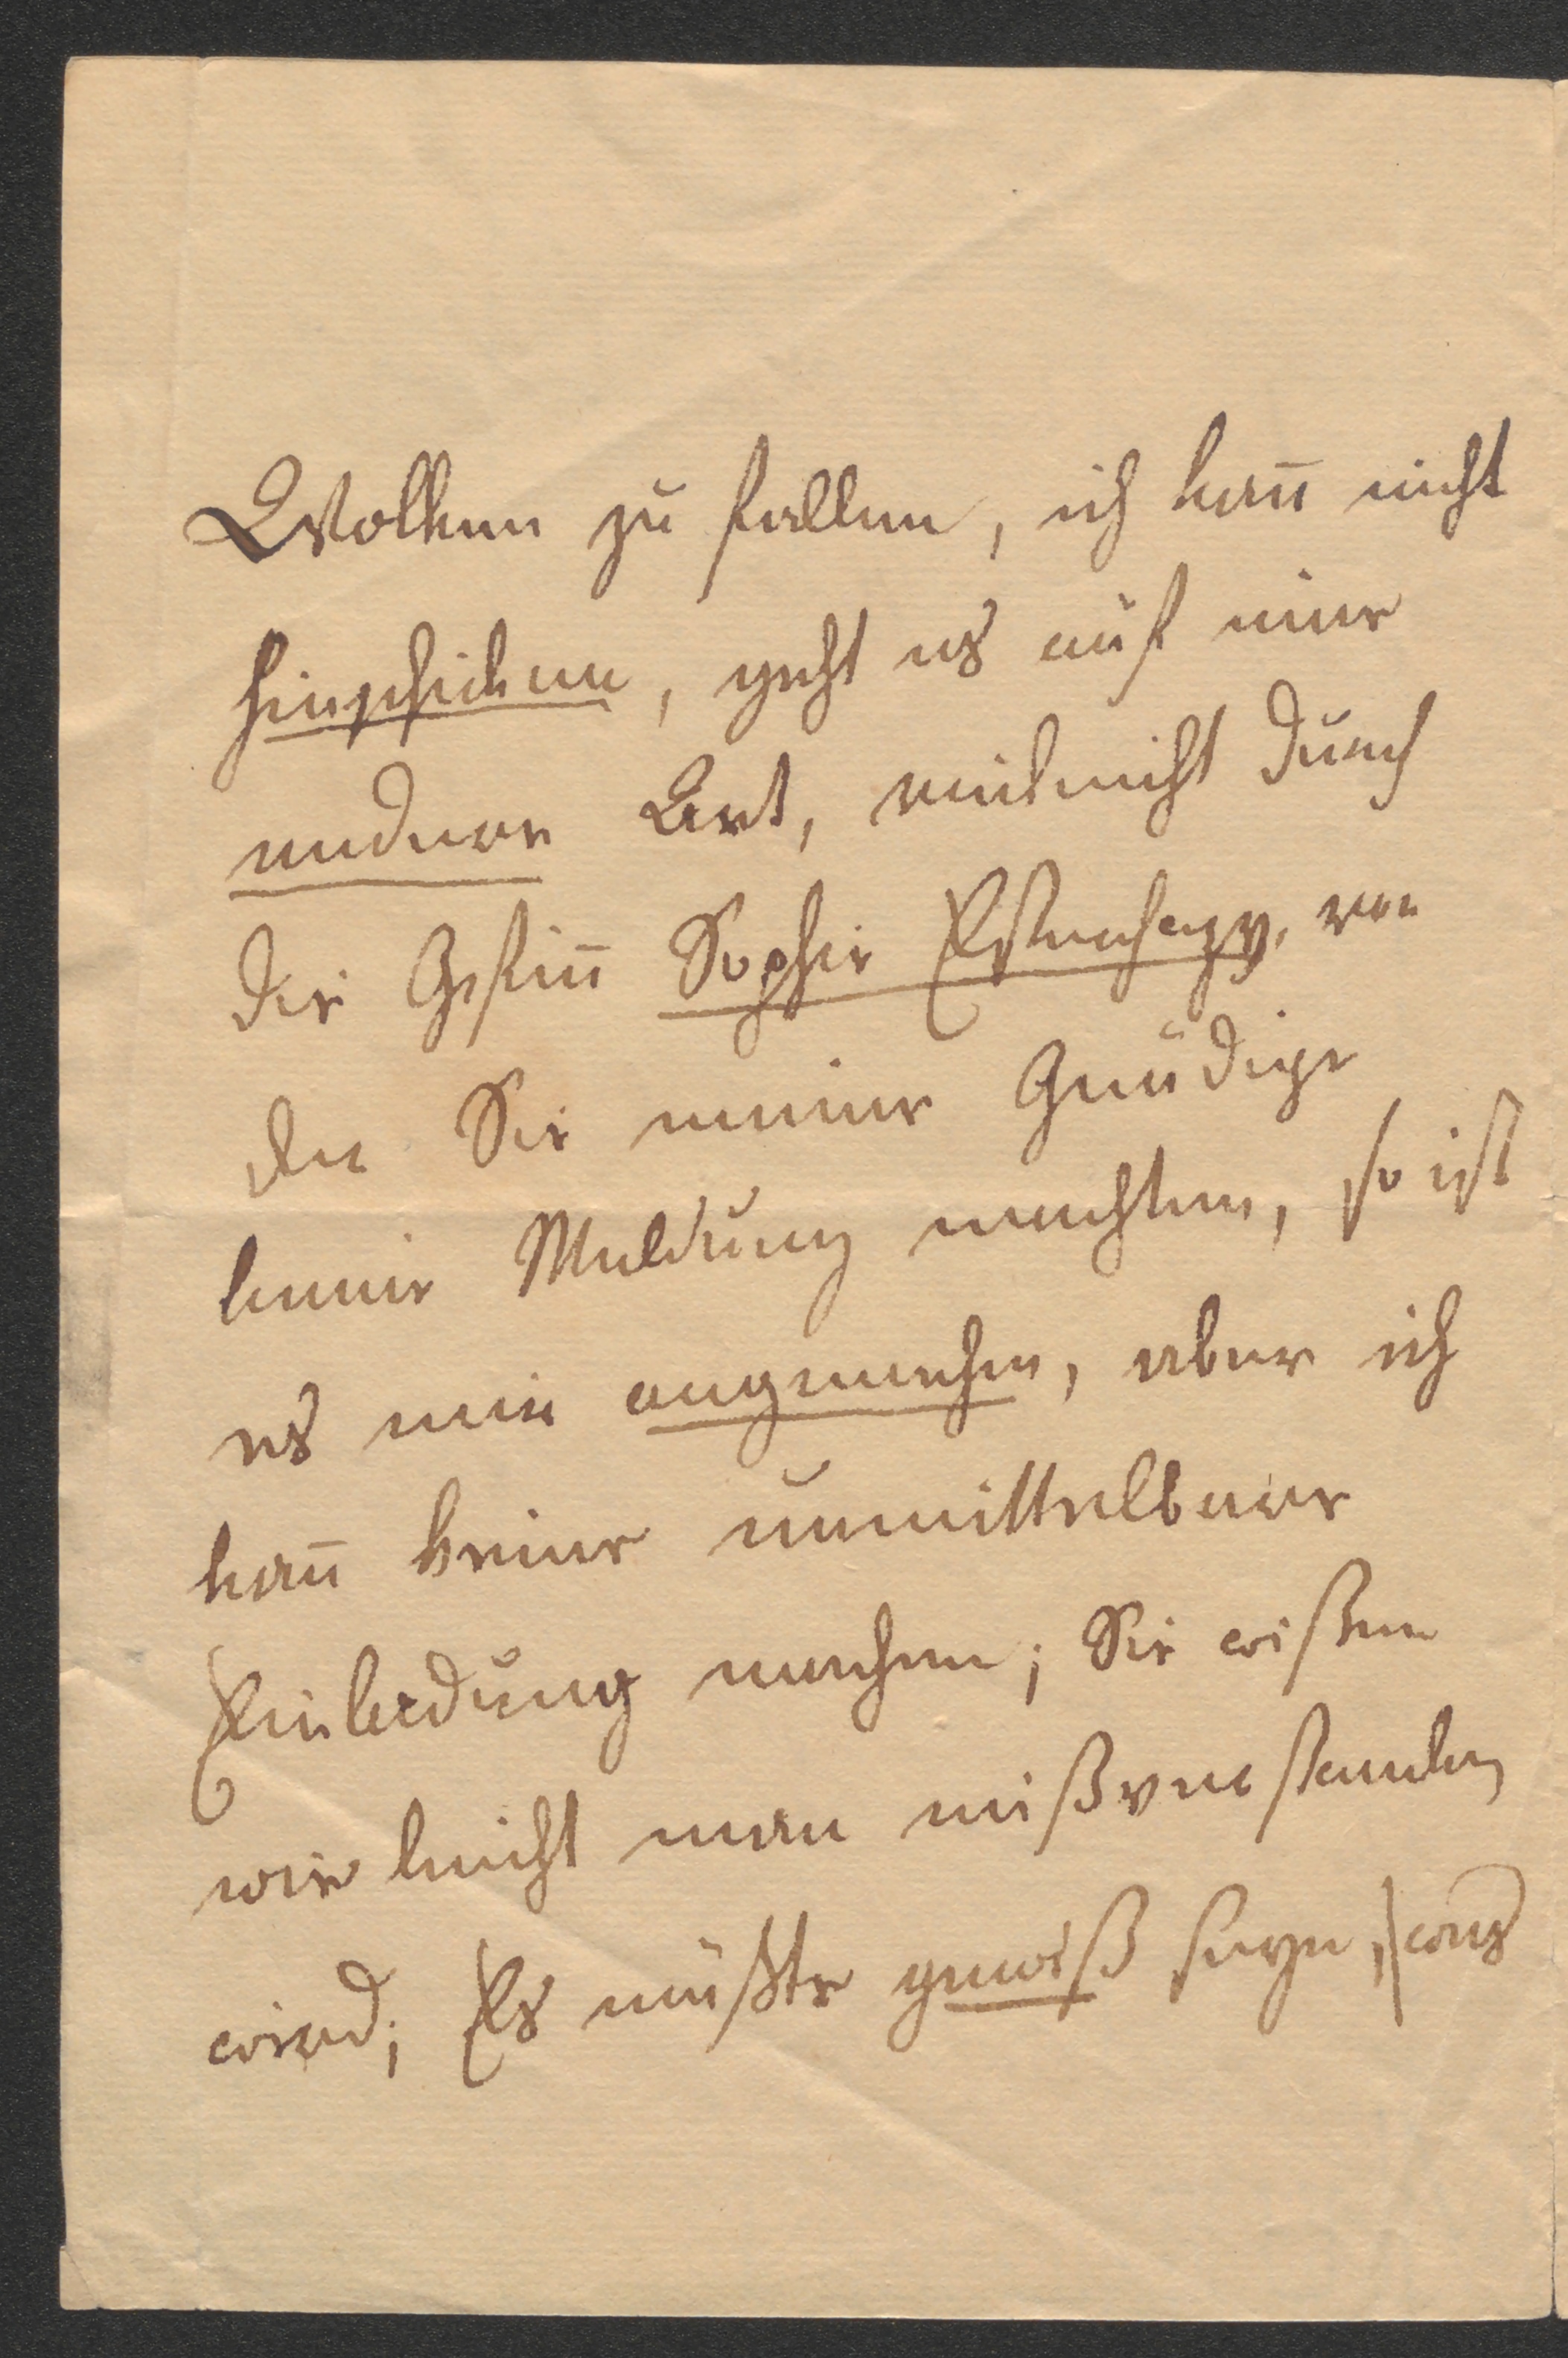 Wolken zu fallen, ich kan̄ nicht
hinschicken, geht es auf eine
andere Art, vielleicht durch
die Gräfin̄ Sophie Esterhazy, von
der Sie meine Gnädige
keine Meldung machten, so ist
es mir angenehm, aber ich
kan̄ keine unmittelbare
Einladung machen; Sie wißen
wie leicht man mißverstanden
wird; Es müßte gewiß seyn,